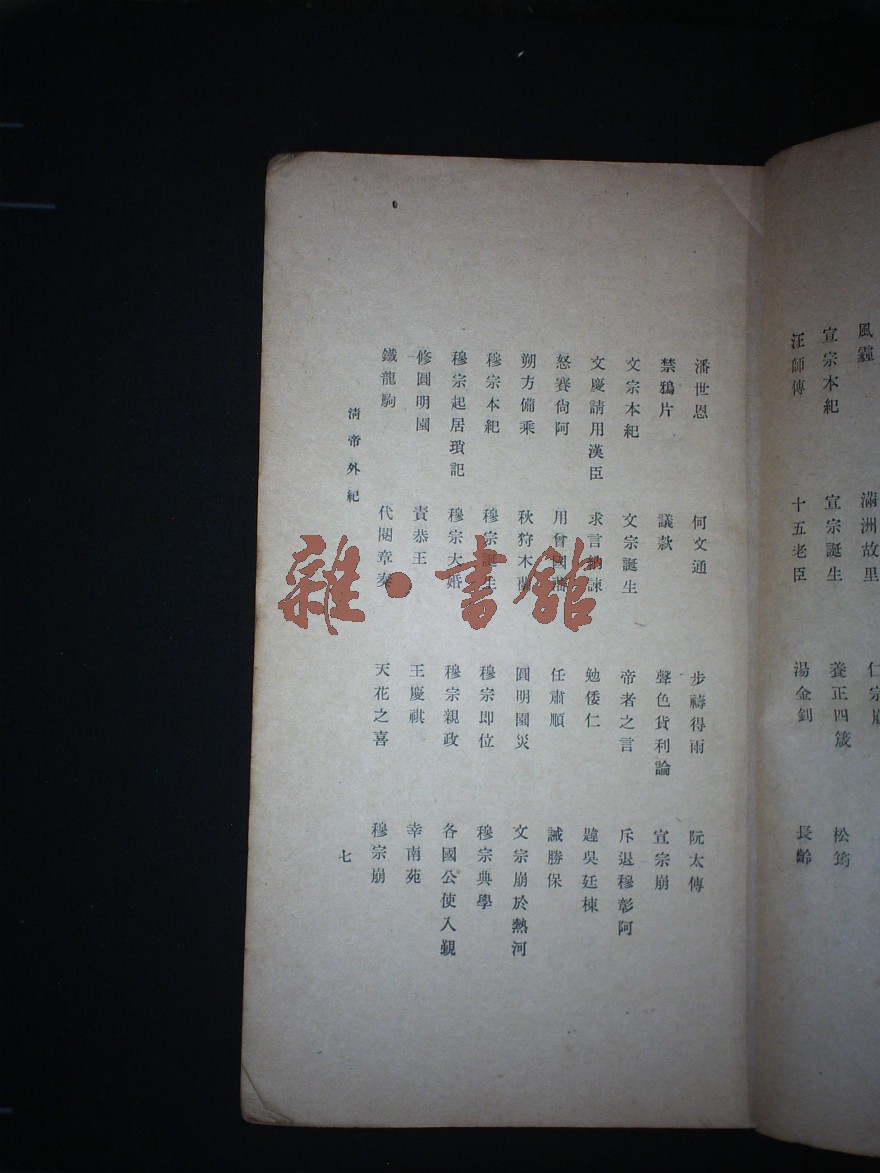 風霾
滿洲故里
宣宗本紀
宣宗誕生
養正四箴
松筠
汪師傅
十五老臣
湯金釗
長齡
潘世恩
何文通
步禱得雨
阮太傅
禁鴉片
議款
聲色貨利論
宣宗崩
文宗本紀
文宗誕生
帝者之言
斥退穆彰阿
文慶請用漢臣
求言納諫
勉倭仁
違吳廷棟
怒賽尙阿
用曾國藩
任肅順
誡勝保
朔方備乘
秋狩木蘭
圓明園災
文宗崩於熱河
穆宗本紀
穆宗誕生
穆宗即位
穆宗典學
穆宗起居瑣記
穆宗大婚
穆宗親政
各國公使入覲
修圓明園
責恭王
王慶祺
幸南苑
鐵龍駒
代閱章奏
天花之喜
穆宗崩
清帝外紀
七
雜·書館